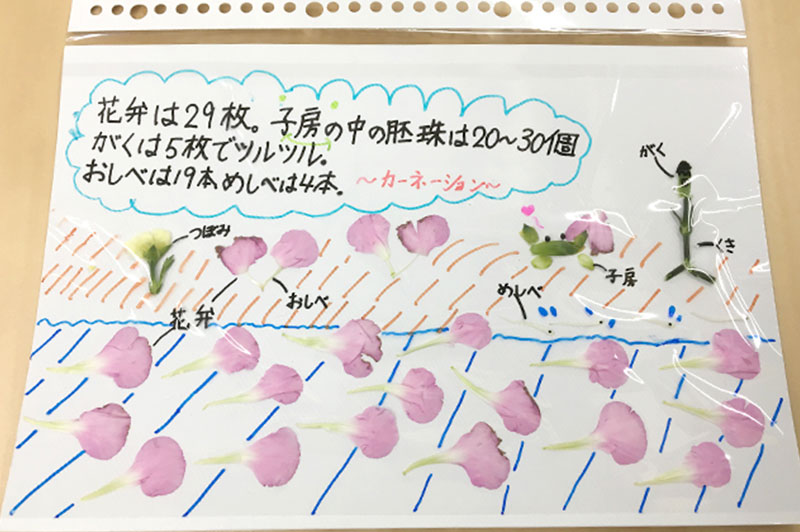 花弁は29枚。子房の中の胚珠は20〜30個
がくは5枚でツルツル。
おしべは19本めしべは4本。 〜カーネーション〜
がく
つぼみ
くき
子房
めしべ
おしべ
花弁